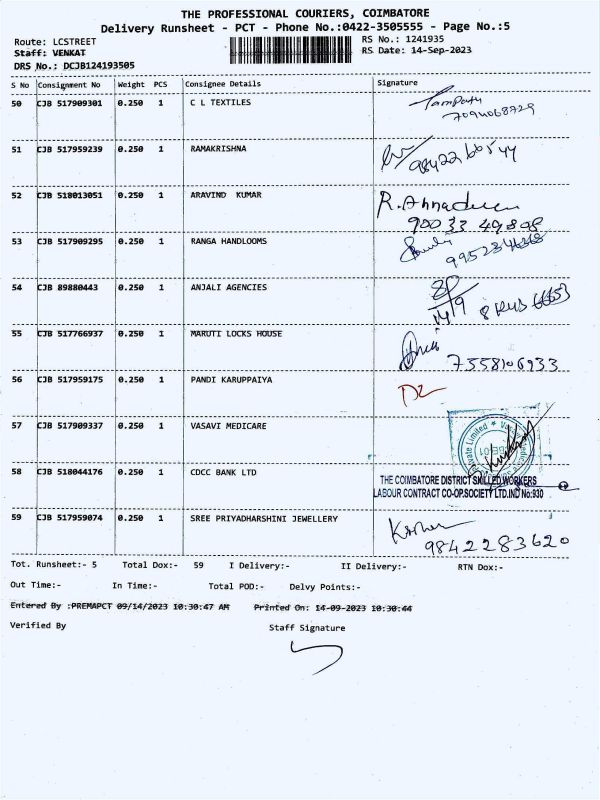 THE PROFESSIONAL COURIERS, COIMBATORE
Delivery Runsheet - PCT - Phone No.:0422-3505555 - Page No.:5
Route: LCSTREET RS No.: 1241935
Staff: VENKAT RS Date: 14-Sep-2023
DRS No.: DCJB124193505
S No Consignment No Weight PCS Consignee Details Signature
50 CJB 517909301 0.250 1 C L TEXTILES
7094068729
51 CJB 517959239 0.250 1 RAMAKRISHNA
52 CJB 518013051 0.250 1 ARAVIND KUMAR
90033 49808
53 CJB 517909295 0.250 1 RANGA HANDLOOMS
54 CJB 89880443 0.250 1 ANJALI AGENCIES
14/9
55 CJB 517766937 0.250 1 MARUTI LOCKS HOUSE
7558106933
56 CJB 517959175 0.250 1 PANDI KARUPPAIYA
57 CJB 517909337 0.250 1 VASAVI MEDICARE
58 CJB 518044176 0.250 1 CDCC BANK LTD
THE COIMBATORE DISTRICT SKILLED WORKERS
LABOUR CONTRACT CO-OP.SOCIETY LTD.IND No:930
59 CJB 517959074 0.250 1 SREE PRIYADHARSHINI JEWELLERY
9842283620
Tot. Runsheet:- 5 Total Dox:- 59 I Delivery:- II Delivery:- RTN Dox:-
Out Time:- In Time:- Total POD:- Delvy Points:-
Entered By :PREMAPCT 09/14/2023 10:30:47 AM Printed On: 14-09-2023 10:30:44
Verified By Staff Signature